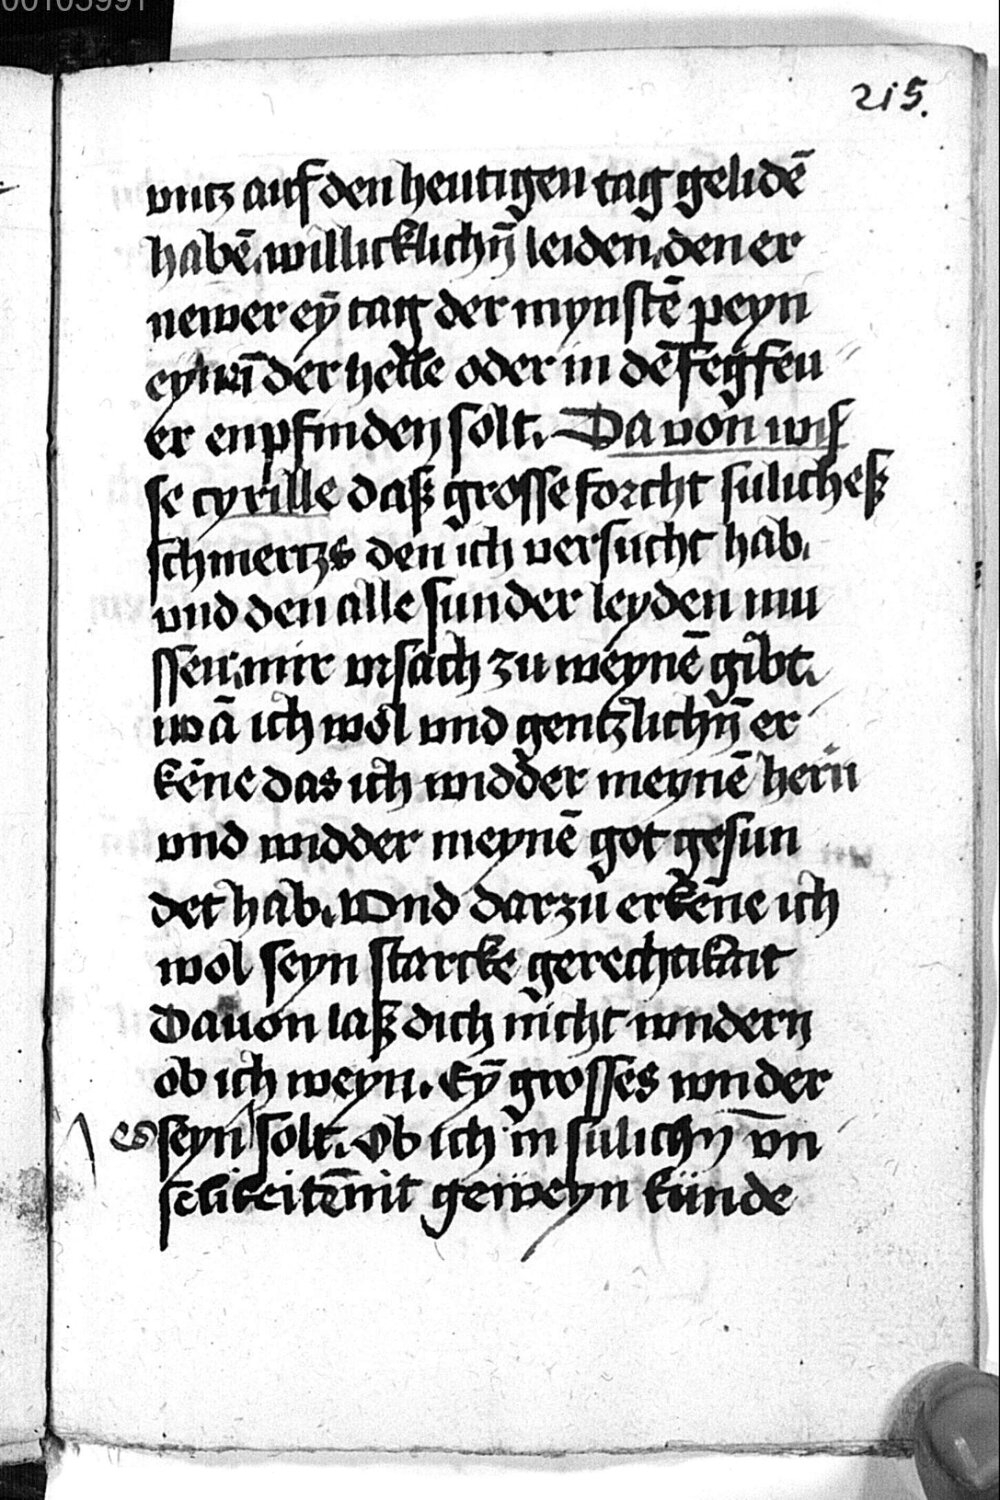 00103991
215.
vntz auf den heutigen tag gelidē
habē. willicklichn̄ leiden. den er
newer eȳ tag der mynstē peyn
der helle oder in dē fegfeu
er enpfinden solt. Da von wis
se cyrille daß grosse forcht sulicheß
schmertzs den ich versucht hab.
vnd den alle sunder leyden mu
ssen. mir vrsach zu weynē gibt.
wā ich wol vnd gentzlichn̄ er
kēne das ich widder meynē hern
vnd widder meynē got gesun
det hab. Vnd darzu erkēne ich
wol seyn starcke gerechtikait
Dauon laß dich nicht wndern
ob ich weyn. Eȳ grosses wnder
es seyn solt. Ob ich in sulichn vn̄
geweyn künde